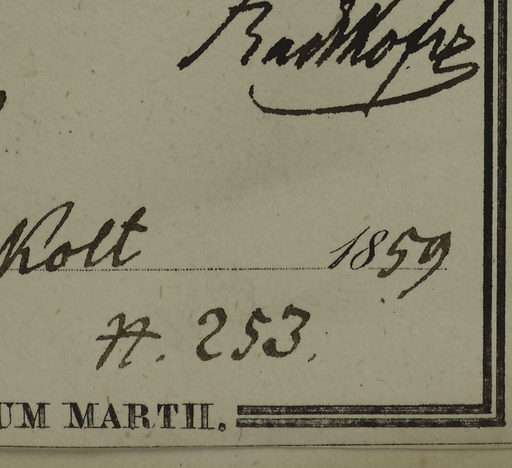 Kolt 1859
N. 253.
UM MARTII.